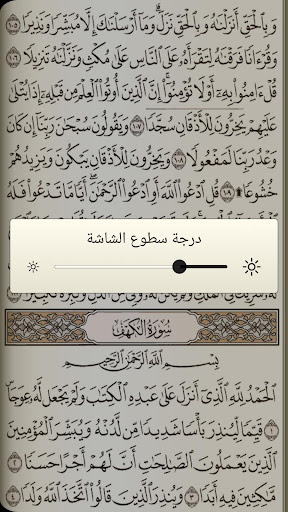 وَبِالْحَقِّ أَنزَلْنَاهُ وَبِالْحَقِّ نَزَلَ ۗ وَمَا أَرْسَلْنَاكَ إِلَّا مُبَشِّرًا وَنَذِيرًا ١٠٥
وَقُرْءَانًا فَرَقْنَاهُ لِتَقْرَأَهُ عَلَى النَّاسِ عَلَىٰ مُكْثٍ وَنَزَّلْنَاهُ تَنزِيلًا ١٠٦
قُلْ ءَامِنُوا بِهِ أَوْ لَا تُؤْمِنُوا ۚ إِنَّ الَّذِينَ أُوتُوا الْعِلْمَ مِن قَبْلِهِ إِذَا يُتْلَىٰ
عَلَيْهِمْ يَخِرُّونَ لِلْأَذْقَانِ سُجَّدًا ١٠٧ وَيَقُولُونَ سُبْحَانَ رَبِّنَا إِن كَانَ
وَعْدُ رَبِّنَا لَمَفْعُولًا ١٠٨ وَيَخِرُّونَ لِلْأَذْقَانِ يَبْكُونَ وَيَزِيدُهُمْ
خُشُوعًا ۩ ١٠٩ قُلِ ادْعُوا اللَّهَ أَوِ ادْعُوا الرَّحْمَٰنَ ۖ أَيًّا مَّا تَدْعُوا فَلَهُ
درجة سطوع الشاشة
سُورَةُ الْكَهْفِ
بِسْمِ اللَّهِ الرَّحْمَٰنِ الرَّحِيمِ
الْحَمْدُ لِلَّهِ الَّذِي أَنزَلَ عَلَىٰ عَبْدِهِ الْكِتَابَ وَلَمْ يَجْعَل لَّهُ عِوَجًا ۜ
١ قَيِّمًا لِّيُنذِرَ بَأْسًا شَدِيدًا مِّن لَّدُنْهُ وَيُبَشِّرَ الْمُؤْمِنِينَ
الَّذِينَ يَعْمَلُونَ الصَّالِحَاتِ أَنَّ لَهُمْ أَجْرًا حَسَنًا ٢
مَّاكِثِينَ فِيهِ أَبَدًا ٣ وَيُنذِرَ الَّذِينَ قَالُوا اتَّخَذَ اللَّهُ وَلَدًا ٤